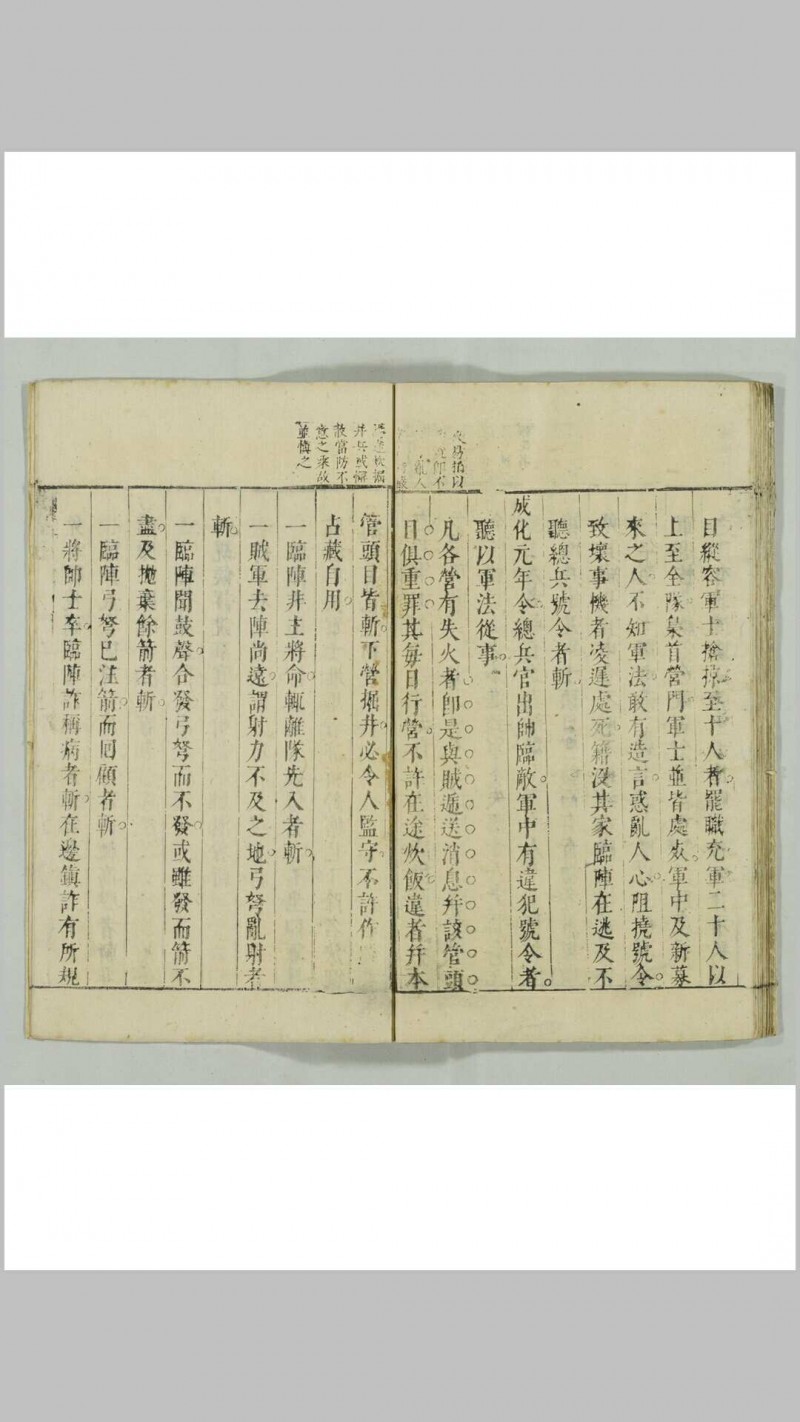 目縱容軍士搶掠至十人者罷職充軍二十人以
上至全隊梟首營門軍士並皆處死軍中及新募
來之人不知軍法敢有造言惑亂人心阻撓號令
致壞事機者凌遲處死籍沒其家臨陣在逃及不
聽總兵號令者斬
成化元年令總兵官出師臨敵軍中有違犯號令者
聽以軍法從事
凡各營有失火者即是與賊遞送消息幷該管頭
目俱重罪其每日行營不許在途炊飯違者幷本
管頭目皆斬下營掘井必令人監守不許作
占藏自用
一臨陣非主將命輒離隊先入者斬
一賊軍去陣尚遠謂射力不及之地弓弩亂射者
斬
一臨陣聞鼓聲合發弓弩而不發或雖發而箭不
盡及拋棄餘箭者斬
一臨陣弓弩已注箭而回顧者斬
一將帥士卒臨陣詐稱病者斬在邊鎮詐有所規
井兵或懈
故當防不
意之來故
並慎之